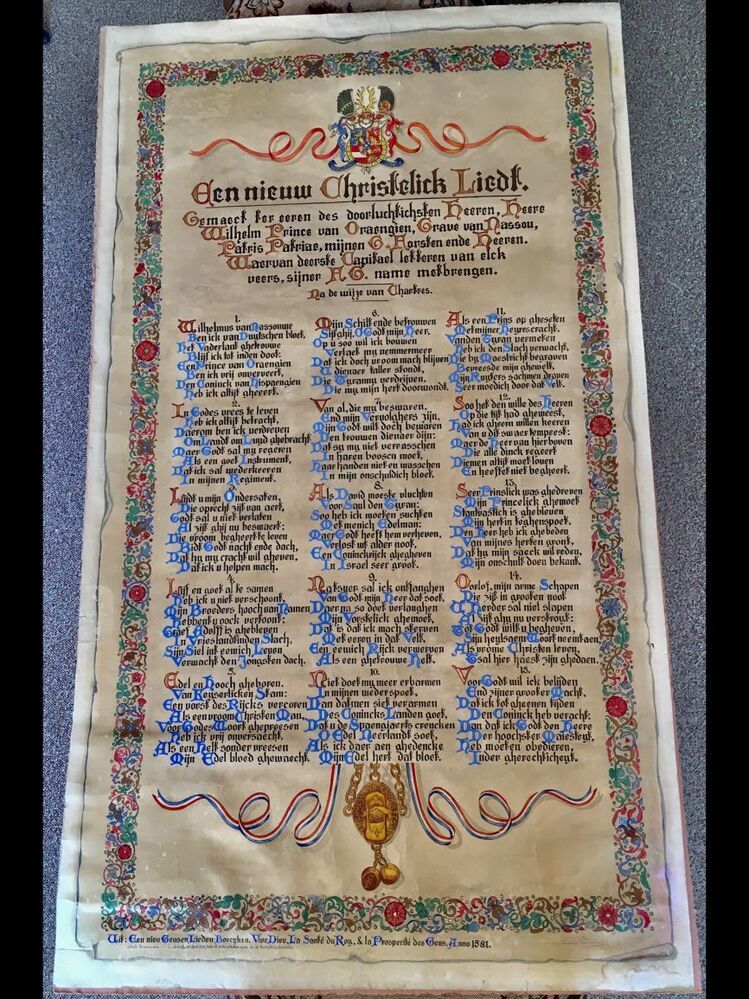 Een nieuw Christelick Liedt.
Gemaect ter eeren des doorluchtichsten Heeren, Heere
Wilhelm Prince van Oraengien, Grave van Nassou,
Patris Patriae, mijnen G. Forsten ende Heeren.
Waervan deerste Capitael letteren van elck
veers, sijner F.G. name metbrengen.
Na de wijze van Chartres.
1.
Wilhelmus van Nassouwe
Ben ick van Duytschen bloet,
Het Vaderlant ghetrouwe
Blijf ick tot inden doot:
Een Prince van Oraengien
Ben ick vrij onverveert,
Den Coninck van Hispaengien
Heb ick altijt gheeert.
2.
In Godes vrees te leven
Heb ick altijt betracht,
Daerom ben ick verdreven
Om Landt om Luyd ghebracht
Maer Godt sal my regeren
Als een goet Instrument,
Dat ick sal wederkeeren
In mijnen Regiment.
3.
Lijdt u mijn Ondersaten,
Die oprecht zijt van aert,
Godt sal u niet verlaten
Al zijt ghij nu beswaert:
Die vroom begheert te leven
Bidt Godt nacht ende dach,
Dat hy my cracht wil gheven,
Dat ick u helpen mach.
4.
Lijf en goet al te samen
Heb ick u niet verschoont,
Mijn Broeders hooch van Namen
Hebbent u oock vertoont:
Graef Adolff is ghebleven
In Vrieslandt inden Slach,
Sijn Siel int eewich Leven
Verwacht den Jongsten dach.
5.
Edel en Hooch gheboren,
Van Keyserlicken Stam:
Een vorst des Rijcks vercoren
Als een vroom Christen Man,
Voor Godes Woort ghepreesen
Heb ick vrij onversaecht,
Als een Helt sonder vreesen
Mijn Edel bloed ghewaecht.
6.
Mijn Schilt ende betrouwen
Sijt ghij, O Godt mijn Heer,
Op u soo wil ick bouwen
Verlaet my nemmermeer
Dat ick doch vroom mach blijven
U dienaer taller stondt,
Die Tyranny verdrijven,
Die my mijn hert doorwondt.
7.
Van al, die my beswaren,
End mijn Vervolghers zijn,
Mijn Godt wilt doch bewaren
Den trouwen dienaer dijn:
Dat sy my niet verrasschen
In haren boosen moet,
Haar handen niet en wasschen
In mijn onschuldich bloet.
8.
Als David moeste vluchten
Voor Saul den Tyran:
Soo heb ick moeten suchten
Met menich Edelman:
Maer Godt heeft hem verheven,
Verlost uit alder noot,
Een Coninckrijck ghegheven
In Israel seer groot.
9.
Na tsuer sal ick ontfanghen
Van Godt mijn Heer dat soet,
Daer na so doet verlanghen
Mijn Vorstelick ghemoet,
Dat is dat ick mach sterven
Met eeren in dat Velt,
Een eewich Rijck verwerven
Als een ghetrouwe Helt.
10.
Niet doet my meer erbarmen
In mijnen wederspoet,
Dan dat men siet verarmen
Des Conincks Landen goet,
Dat u de Spaengaerts crencken
O Edel Neerlandt soet,
Als ick daer aen ghedencke
Mijn Edel hert dat bloet.
11.
Als een Prins op gheseten
Met mijner Heyrescracht,
Vanden Tyran vermeten
Heb ick den Slach verwacht,
Die by Maestricht begraven
Bevreesde mijn ghewelt,
Mijn Ruyters sach men draven
Seer moedich door dat Velt.
12.
Soo het den wille des Heeren
Op die tijt had gheweest,
Had ick gheern willen keeren
Van u dit swaer tempeest:
Maer de Heer van hierboven
Die alle dinck regeert
Diemen altijt moet loven
En heeftet niet begheert.
13.
Seer Prinslick was ghedreven
Mijn Princelick ghemoet
Stantvastich is ghebleven
Mijn hert in teghenspoet,
Den Heer heb ick ghebeden
Van mijnes herten gront,
Dat hy mijn saeck wil reden,
Mijn onschult doen bekant.
14.
Oorlof, mijn arme Schapen
Die zijt in grooten noot
U Herder sal niet slapen
Al zijt ghy nu verstroyt:
Tot Godt wilt u begheven,
Sijn heylsaem Woort neemt aen,
Als vrome Christen leven,
Tsal hier haest zijn ghedaen.
15.
Voor Godt wil ick belijden
End zijner grooter Macht,
Dat ick tot gheenen tijden
Den Coninck heb veracht:
Dan dat ick Godt den Heere
Der hoochster Maiesteyt,
Heb moeten obedieren,
Inder gherechticheyt.
Uit: Een nieu Geusen Lieden Boecxken, Vive Dieu, La Santé du Roy, & la Prosperité des Geus, Anno 1581.